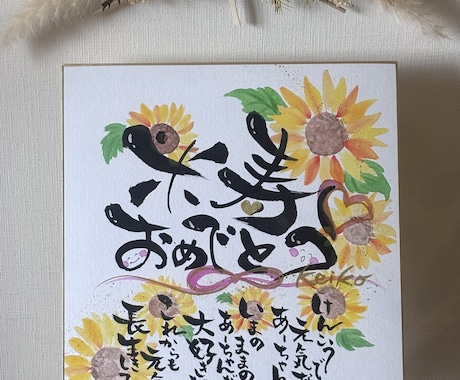 米寿
おめでとう
keiko
けんこうで
元気だ
あーちゃん
いまの
ままの
あーちゃんが
大好き
これからも
元
長生きし